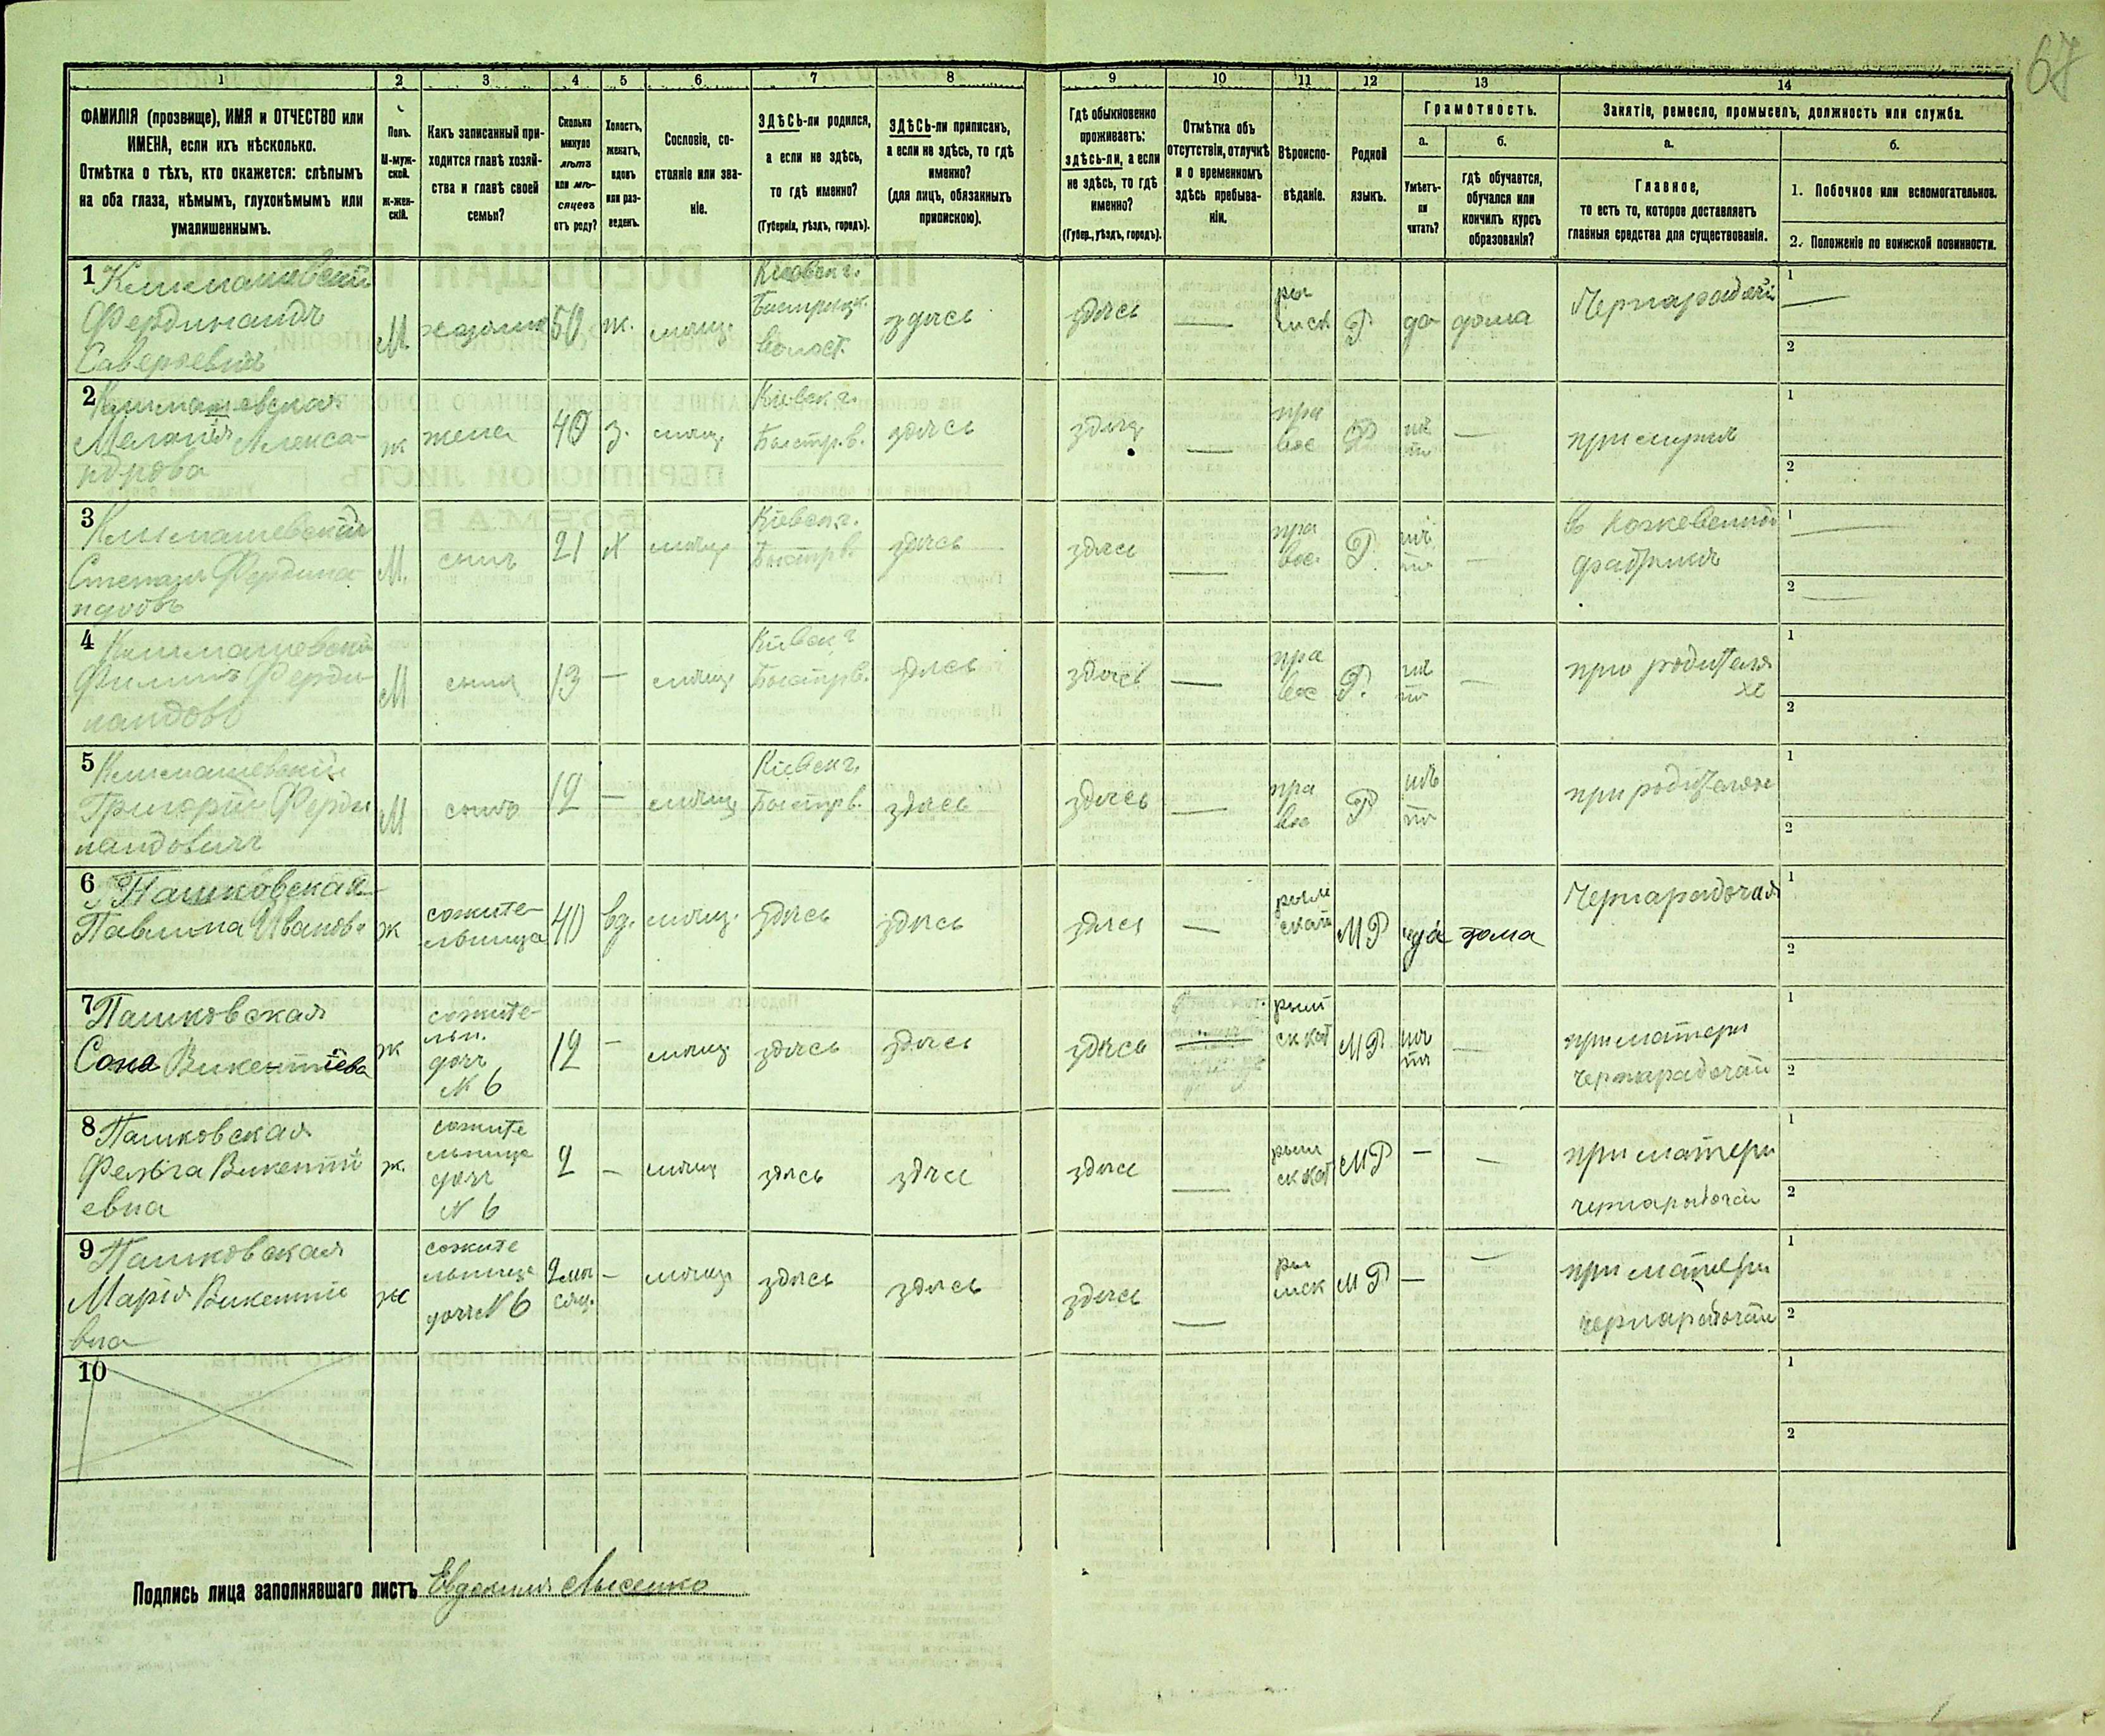 67
1 2 3 4 5 6 7 8 9 10 11 12 13 14
ФАМИЛІЯ (прозвище), ИМЯ и ОТЧЕСТВО или
ИМЕНА, если ихъ нѣсколько.
Отмѣтка о тѣхъ, кто окажется: слѣпымъ
на оба глаза, нѣмымъ, глухонѣмымъ или
умалишеннымъ.
Полъ.
М-муж-
ской.
ж-жен-
скій.
Какъ записанный при-
ходится главѣ хозяй-
ства и главѣ своей
семьи?
Сколько
минуло
лѣтъ
или мѣ-
сяцевъ
отъ роду?
Холостъ,
женатъ,
вдовъ
или раз-
веденъ.
Сословіе, со-
стояніе или зва-
ніе.
ЗДѢСЬ-ли родился,
а если не здѣсь,
то гдѣ именно?
(Губернія, уѣздъ, городъ).
ЗДѢСЬ-ли приписанъ,
а если не здѣсь, то гдѣ
именно?
(для лицъ, обязанныхъ
припискою).
Гдѣ обыкновенно
проживаетъ:
здѣсь-ли, а если
не здѣсь, то гдѣ
именно?
(Губер., уѣздъ, городъ).
Отмѣтка объ
отсутствіи, отлучкѣ
и о временномъ
здѣсь пребыва-
ніи.
Вѣроиспо-
вѣданіе.
Родной
языкъ.
Грамотность.
а.
Умѣетъ-
ли
читать?
б.
гдѣ обучается,
обучался или
кончилъ курсъ
образованія?
Занятіе, ремесло, промыселъ, должность или служба.
а.
Главное,
то есть то, которое доставляетъ
главныя средства для существованія.
б.
1. Побочное или вспомогательное.
2. Положеніе по воинской повинности.
1 Климашевскій
Фердинандъ
Саверьевичъ
М. хозяинъ 50 ж. мѣщ. Кіевск г. здѣсь здѣсь — Р да дома
2 Климашевская
Меланія Алекса-
ндрова
ж жена 40 з. мѣщ. Кіевск г. Быстр. в. здѣсь — пра вос Р нѣ тъ — при мужѣ
3 Климашевскій
Степанъ Фердина
ндовъ
М. сынъ 21 Х мѣщ Кіевск г. Быстр в. здѣсь здѣсь — пра вос. Р. нѣ тъ — въ кожевенной
фабрикѣ
4 Климашевскій
Филипъ Ферди-
нандовъ
М сынъ 13 — мѣщ. Кіевск г Быстр в. здѣсь здѣсь — пра вос Р. нѣ тъ — при родителя
хъ
5 Климашевскій
Григорій Ферди
нандовичъ
М сынъ 12 — мѣщ. Кіевск г. Быстр в. здѣсь здѣсь — пра вос Р нѣ тъ при родителяхъ
6 Пашковская
Павлина Иванов.
ж сожите-
льница 40 вд. мѣщ. здѣсь здѣсь здѣсь — МР да дома Чернарабочая
7 Пашковская
Соня Викентіева
ж сожите-
льн.
доч
N 6 12 — мѣщ здѣсь здѣсь здѣсь рым
ск кат МР нѣ
тъ — при матери
чернарабочай
8 Пашковская
Феліга Викенті
евна
ж. сожите
льница
доч
N 6 2 — мѣщ здѣсь здѣсь здѣсь — рым
ск кат МР — — при матери
чернарабочай
9 Пашковская
Марія Викентіе
вна
ж сожите
льница
доч N 6 2 мѣ
сяц. — мѣщ. здѣсь здѣсь здѣсь — МР — — при матери
чернарабочай
10
Подпись лица заполнявшаго листъ Евдокимъ Лысенко